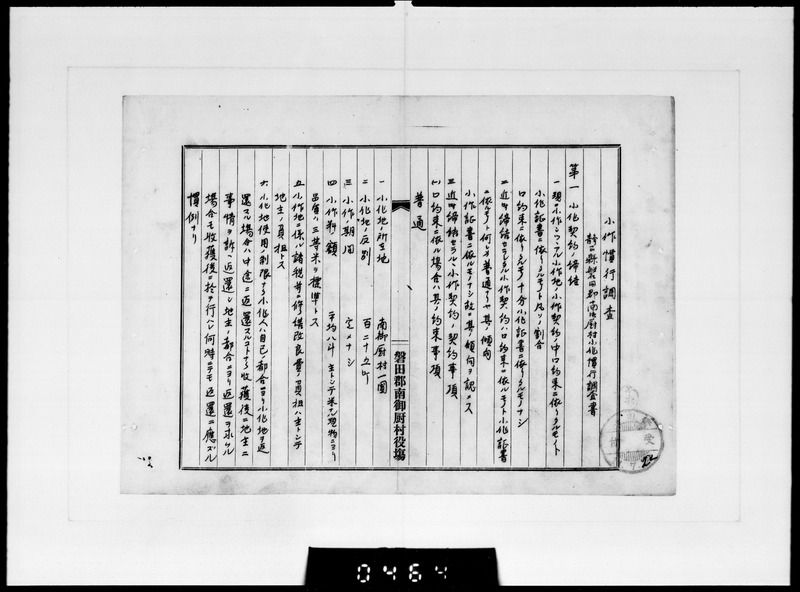 小作慣行調査
静岡県磐田郡南御厨村小作慣行調査書
第一 小作契約ノ締結
一 現ニ小作シツヽアル小作地ノ小作契約ノ中口約束ニ依リタルモノト
小作証書ニ依リタルモノト凡ソノ割合
口約束ニ依リタルモノ十分小作証書ニ依リタルモノナシ
二 近時締結セラルヽ小作契約ハ口約束ニ依ルモノト小作証書
ニ依ルモノト何レカ普通ナリヤ其ノ傾向
小作証書ニ依ルモノナシ故ニ其ノ傾向ヲ認メス
三 近時締結セラルヽ小作契約ノ契約事項
(一) 口約束ニ依ル場合ハ其ノ約束事項
普通
磐田郡南御厨村役場
一 小作地ノ所在地 南御厨村一円
二 小作地ノ反別 百二十九町
三 小作ノ期間 定メナシ
四 小作料額 平均八斗 主トシテ米ノ現物ニヨリ
品質ハ三等米ヲ標準トス
五 小作地ニ係ル諸税其ノ修繕改良費ノ負担ハ主トシテ
地主ノ負担トス
六 小作地使用ノ制限ナク小作人ハ自己ノ都合ニヨリ小作地ヲ返
還スル場合ハ中途ニ返還スルコトナク収穫後ニ地主ニ
事情ヲ訴ヘ返還シ地主ノ都合ニヨリ返還ヲ求ムル
場合モ収穫後ニ於テ行ヘハ何時ニテモ返還ニ応ズル
慣例ナリ
0464